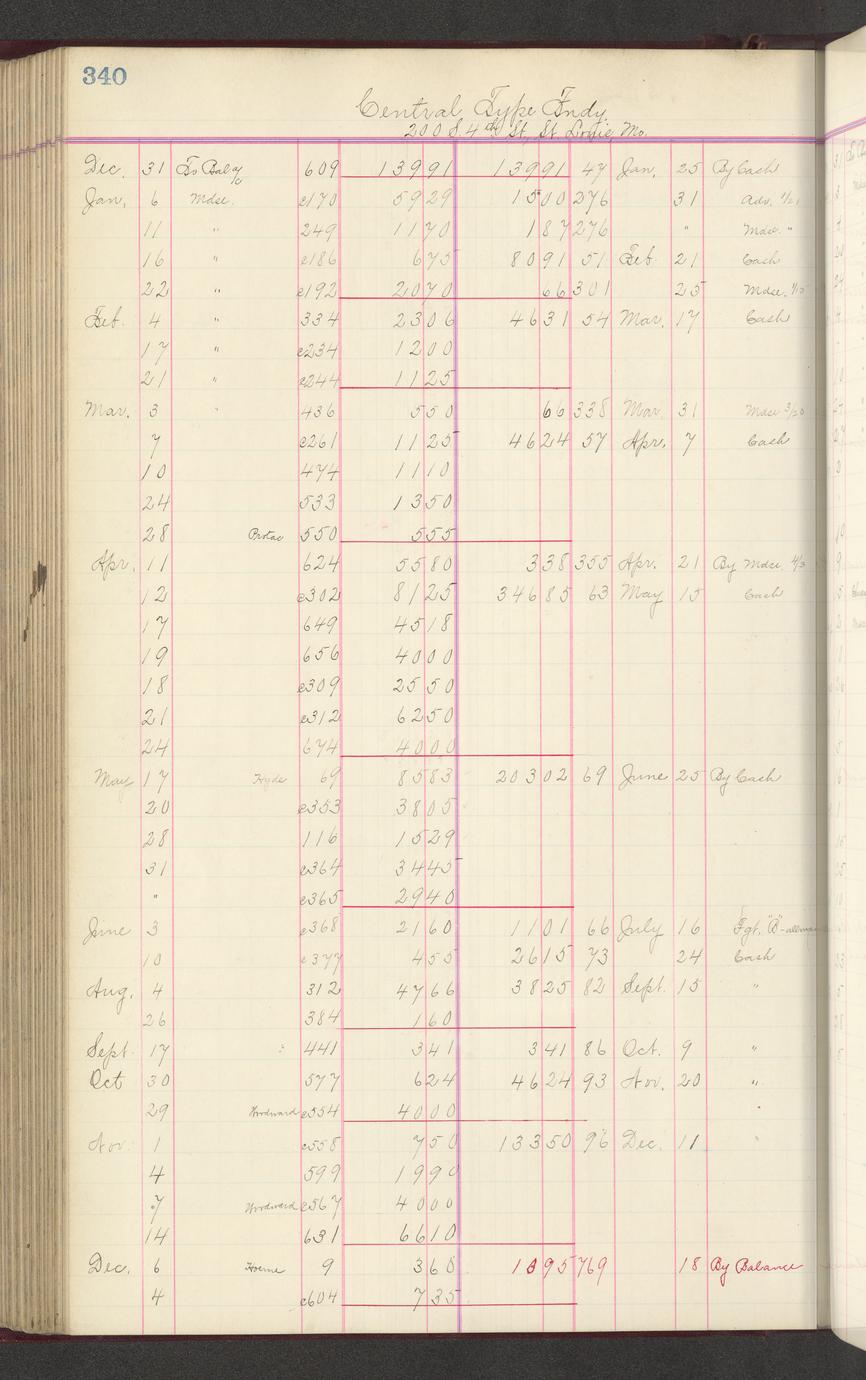 340
Central Type Fndy.
200 S. 4th St., St. Louis, Mo.
Dec. 31 To Bal a/c 609 139 91 139 91 47 Jan. 25 By Cash
Jan. 6 Mdse. c170 59 29 15 00 276 31 Adv.
11 " 249 11 70 1 87 276 " Mdse. "
16 " c186 6 75 80 91 51 Feb. 21 Cash
22 " c192 20 70 66 301 25 Mdse.
Feb. 4 " 334 23 06 46 31 54 Mar. 17 Cash
17 " c234 12 00
21 " c244 11 25
Mar. 3 " 436 5 50 66 338 Mar 31 Mdse 3/20
7 c261 11 25 46 24 57 Apr. 7 Cash
10 474 11 10
24 533 13 50
28 550 5 55
Apr. 11 624 55 80 3 38 355 Apr. 21 By Mdse.
12 c302 81 25 346 85 63 May 15 Cash
17 649 45 18
19 656 40 00
18 c309 25 50
21 c312 62 50
24 674 40 00
May 17 Hyde 69 85 83 203 02 69 June 25 By Cash
20 c353 38 05
28 116 15 29
31 c364 34 45
" c365 29 40
June 3 c368 21 60 11 01 66 July 16 Fgt. "B"
10 c377 4 55 26 15 73 24 Cash
Aug. 4 312 47 66 38 25 82 Sept. 15 "
26 384 1 60
Sept. 17 441 3 41 3 41 86 Oct. 9 "
Oct 30 577 6 24 46 24 93 Nov. 20 "
29 Woodward c554 40 00
Nov. 1 c558 7 50 133 50 96 Dec. 11 "
4 599 19 90
7 Woodward c567 40 00
14 631 66 10
Dec. 6 9 3 60 10 95 769 18 By Balance
4 c604 7 35